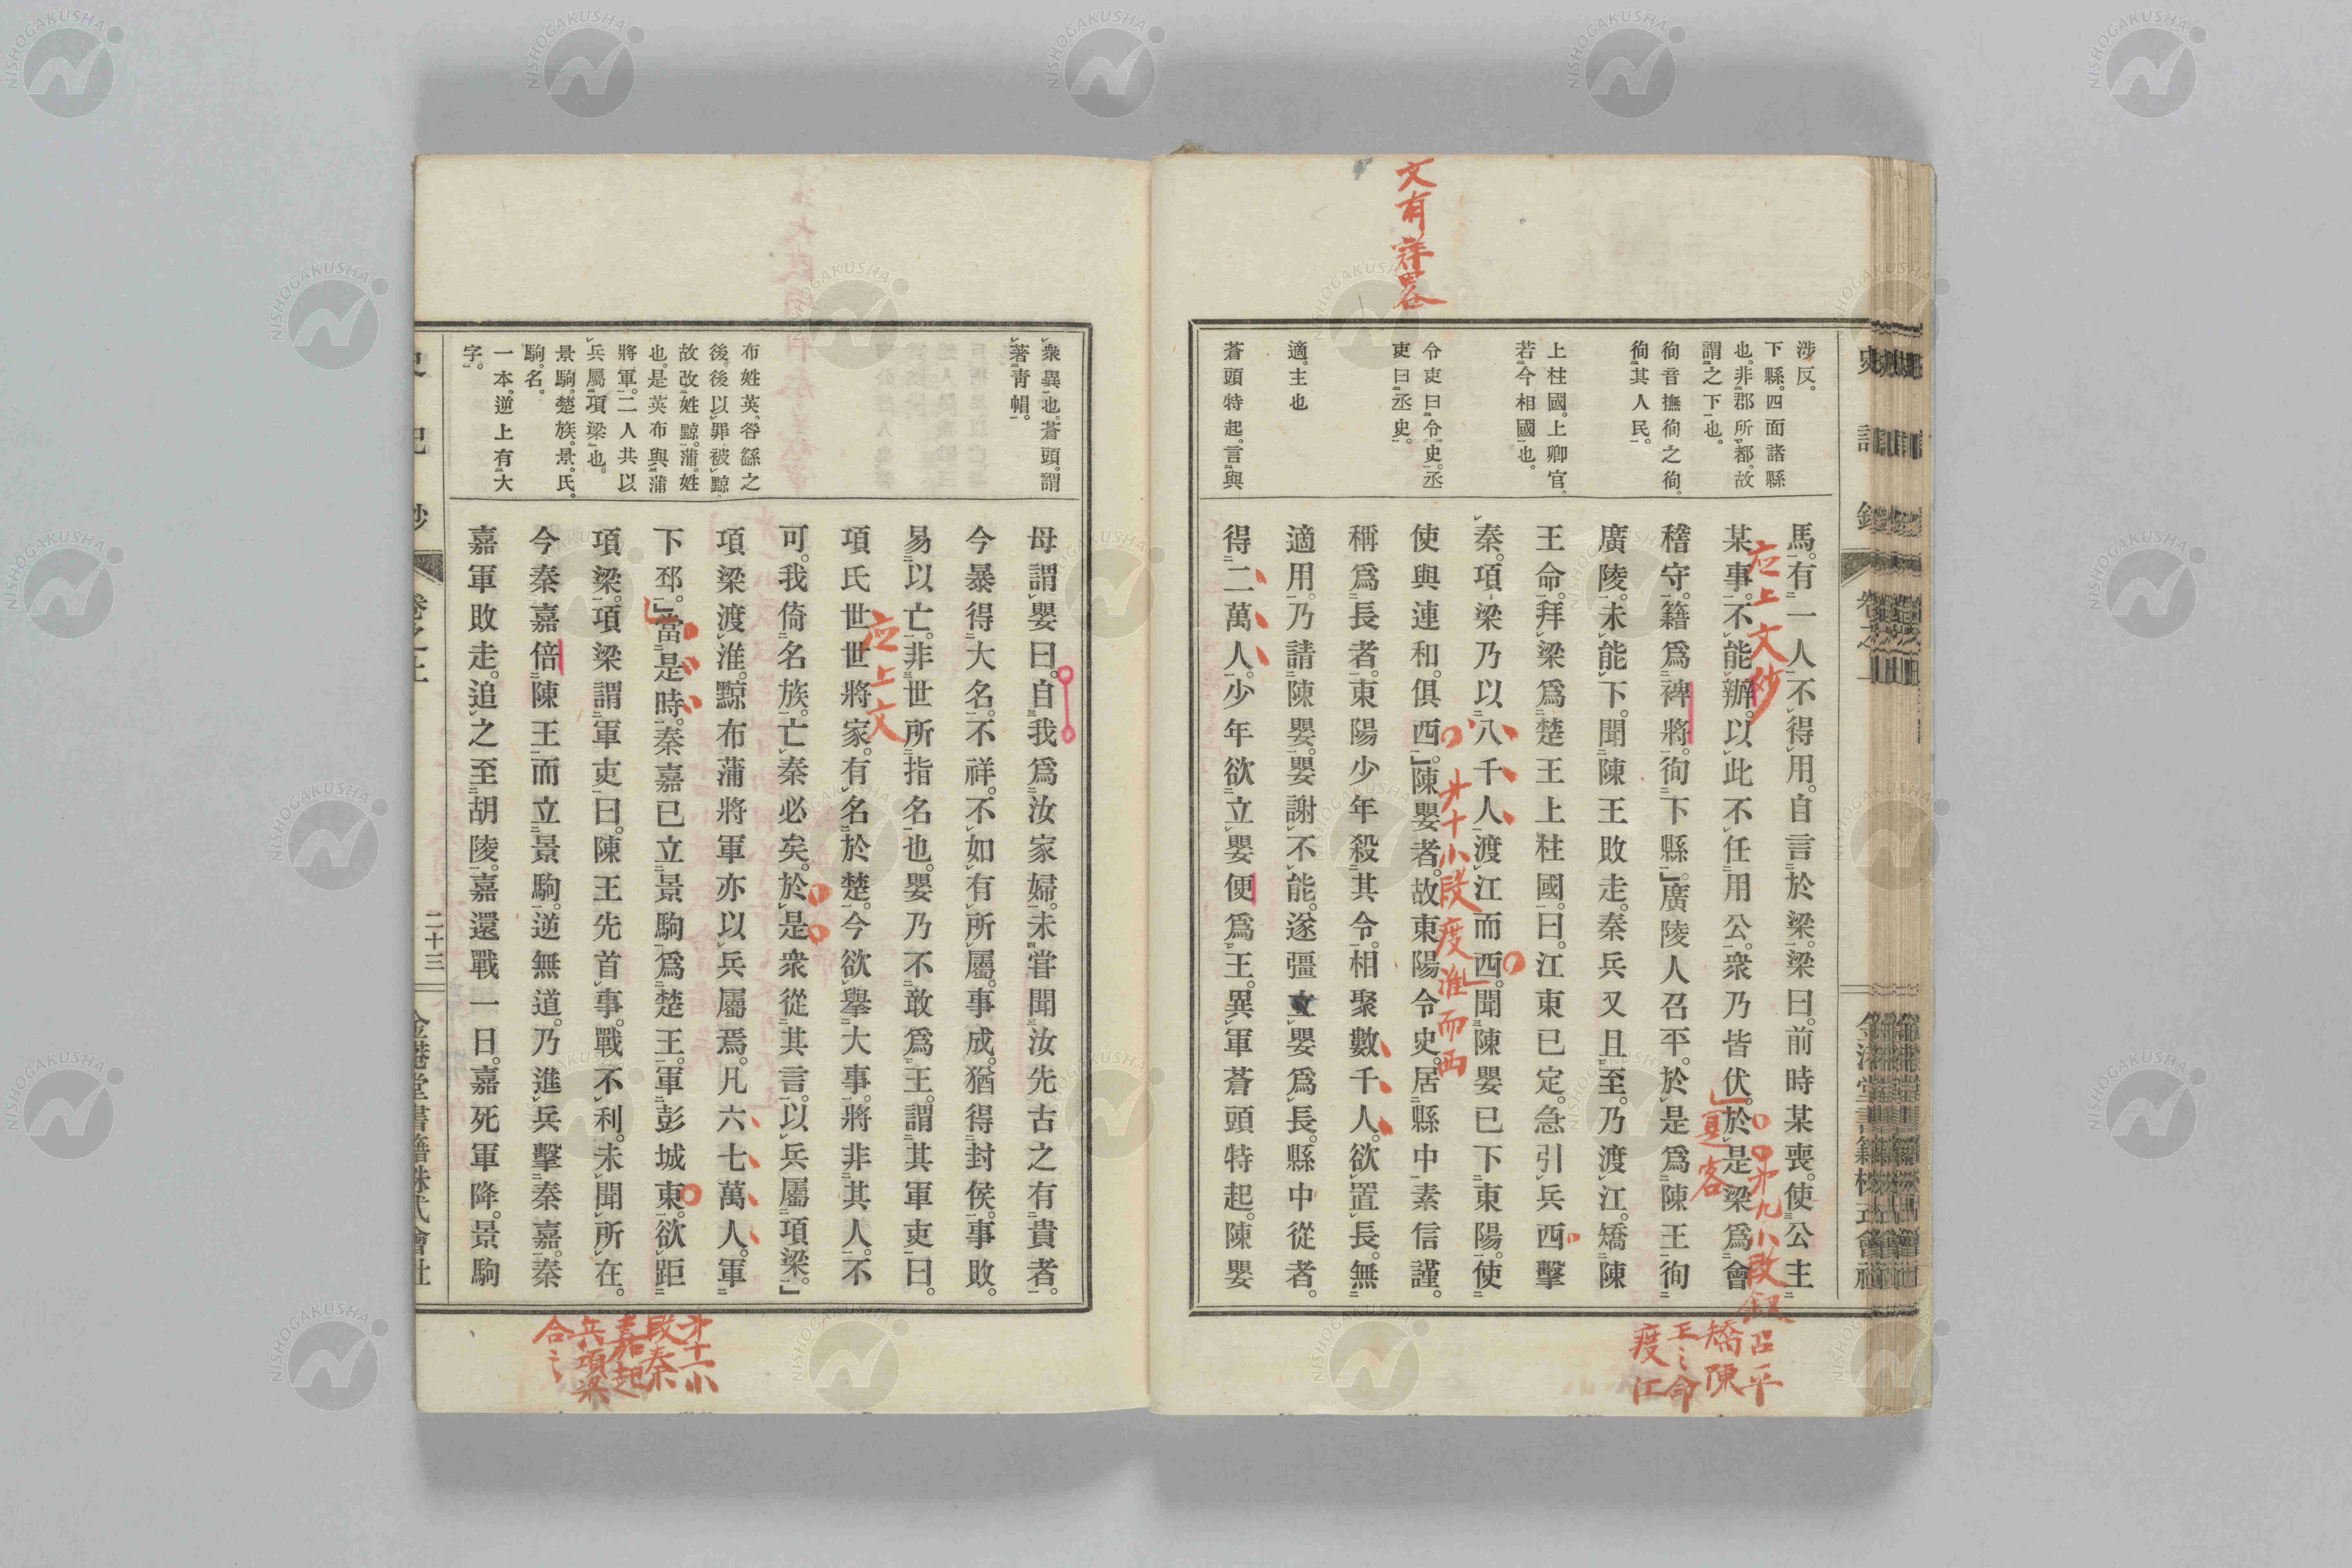 文有詳畧
涉反。
下縣。四面諸縣
也。非郡所都。故
謂之下也。
徇音撫徇之徇。
徇其人民。
上柱國。上卿官。
若今相國也。
令吏曰令史。丞
吏曰丞史。
適。主也
蒼頭特起。言與
馬。有一人不得用。自言於梁。梁曰。前時某喪。使公主
某事。不能辦。以此不任用公。衆乃皆伏。於是梁爲會
稽守。籍爲裨將。徇下縣。」廣陵人召平。於是爲陳王徇
廣陵。未能下。聞陳王敗走。秦兵又且至。乃渡江。矯陳
王命。拜梁爲楚王上柱國。曰。江東已定。急引兵西擊
秦。項梁乃以八千人渡江而西。聞陳嬰已下東陽。使
使與連和。俱西。」陳嬰者。故東陽令史。居縣中。素信謹。
稱爲長者。東陽少年殺其令。相聚數千人。欲置長。無
適用。乃請陳嬰。嬰謝不能。遂彊立嬰爲長。縣中從者。
得二萬人。少年欲立嬰便爲王。異軍蒼頭特起。陳嬰
应上文妙
第九小段叙召平
矯陳
王之命
度江
第十小段度淮而西
衆異也。蒼頭。謂
著青帽。
布姓英。咎繇之
後。後以罪被黥。
故改姓黥。蒲。姓
也。是英布與蒲
將軍。二人共以
兵屬項梁也。
景駒。楚族。景。氏。
駒。名。
一本。逆上有大
字。
母謂嬰曰。自我爲汝家婦。未嘗聞汝先古之有貴者。
今暴得大名。不祥。不如有所屬。事成。猶得封侯。事敗。
易以亡。非世所指名也。嬰乃不敢爲王。謂其軍吏曰。
項氏世世將家。有名於楚。今欲擧大事。將非其人。不
可。我倚名族。亡秦必矣。於是衆從其言。以兵屬項梁。」
項梁渡淮。黥布蒲將軍亦以兵屬焉。凡六七萬人。軍
下邳。」當是時。秦嘉已立景駒爲楚王。軍彭城東。欲距
項梁。項梁謂軍吏曰。陳王先首事。戰不利。未聞所在。
今秦嘉倍陳王而立景駒。逆無道。乃進兵擊秦嘉。秦
嘉軍敗走。追之至胡陵。嘉還戰一日。嘉死軍降。景駒
应上文
第十一小
段秦
嘉起
兵項梁
合之
二十三
金港堂書籍株式會社
NISHOGAKUSHA